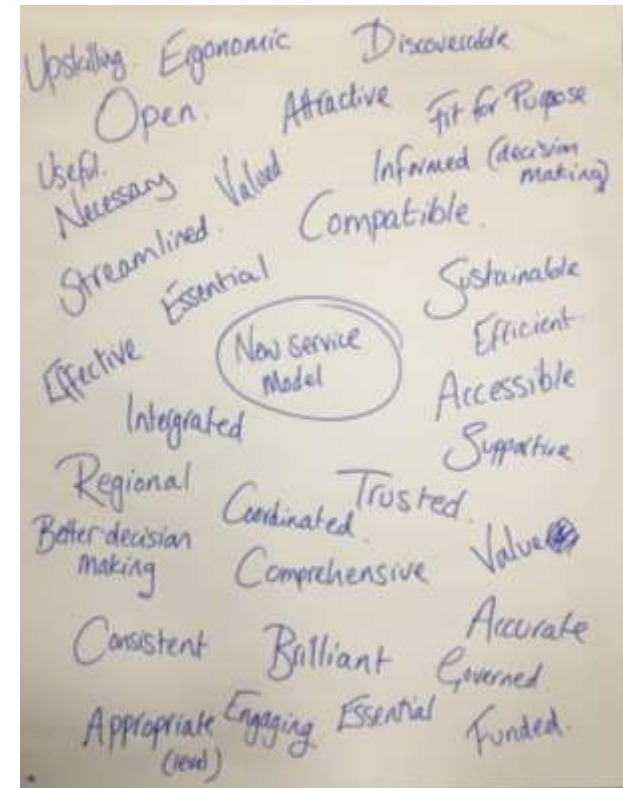 Upskilling. Ergonomic Discoverable
Open. Attractive Fit for Purpose
Useful.
Necessary Valued Informed (decision
making)
Streamlined. Compatible.
Essential Sustainable
Effective New service Efficient.
Model Accessible
Intergrated Supportive
Regional Coordinated. Trusted.
Better decision Value
making Comprehensive
Consistent Brilliant Accurate
Governed.
Appropriate Engaging Essential Funded.
(level)